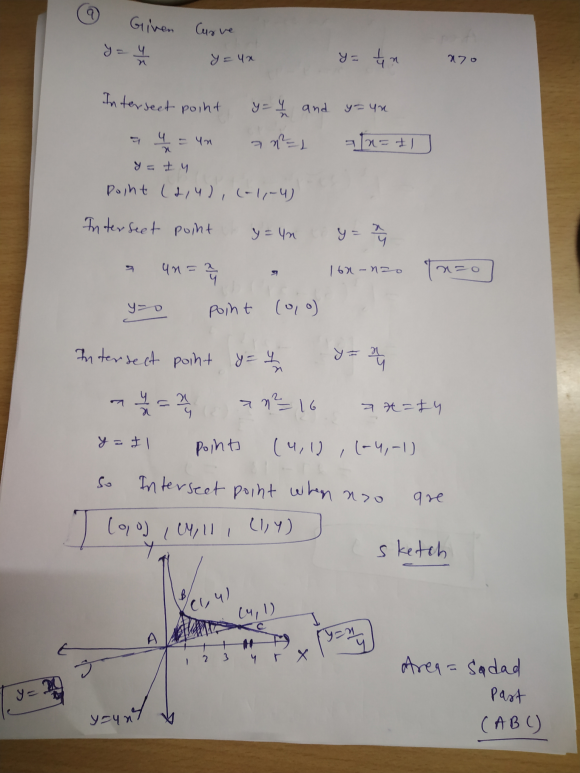 (9) Given Curve
y = 4/x y = 4x y = 1/4 x x>0
Intersect point y = 4/x and y = 4x
⇒ 4/x = 4x ⇒ x² = 1 ⇒ x = ±1
y = ±4
Point (1,4), (-1,-4)
Intersect point y = 4x y = x/4
⇒ 4x = x/4 ⇒ 16x - x = 0 x = 0
y = 0 point (0,0)
Intersect point y = 4/x y = x/4
⇒ 4/x = x/4 ⇒ x² = 16 ⇒ x = ±4
y = ±1 points (4,1), (-4,-1)
So Intersect point when x>0 are
(0,0), (4,1), (1,4)
Sketch
Y
B (1,4)
(4,1)
A C
1 2 3 4 5 X
y = x/4
y =
y = 4x²
Area = Sadad
Part
(ABC)